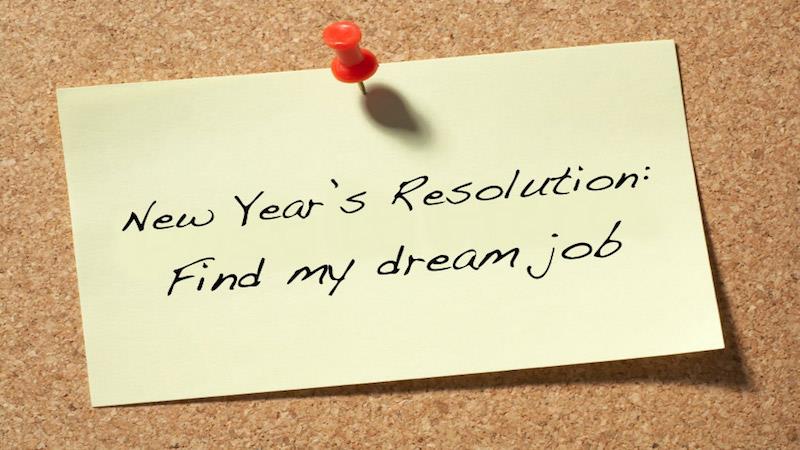 New Year's Resolution:
Find my dream job